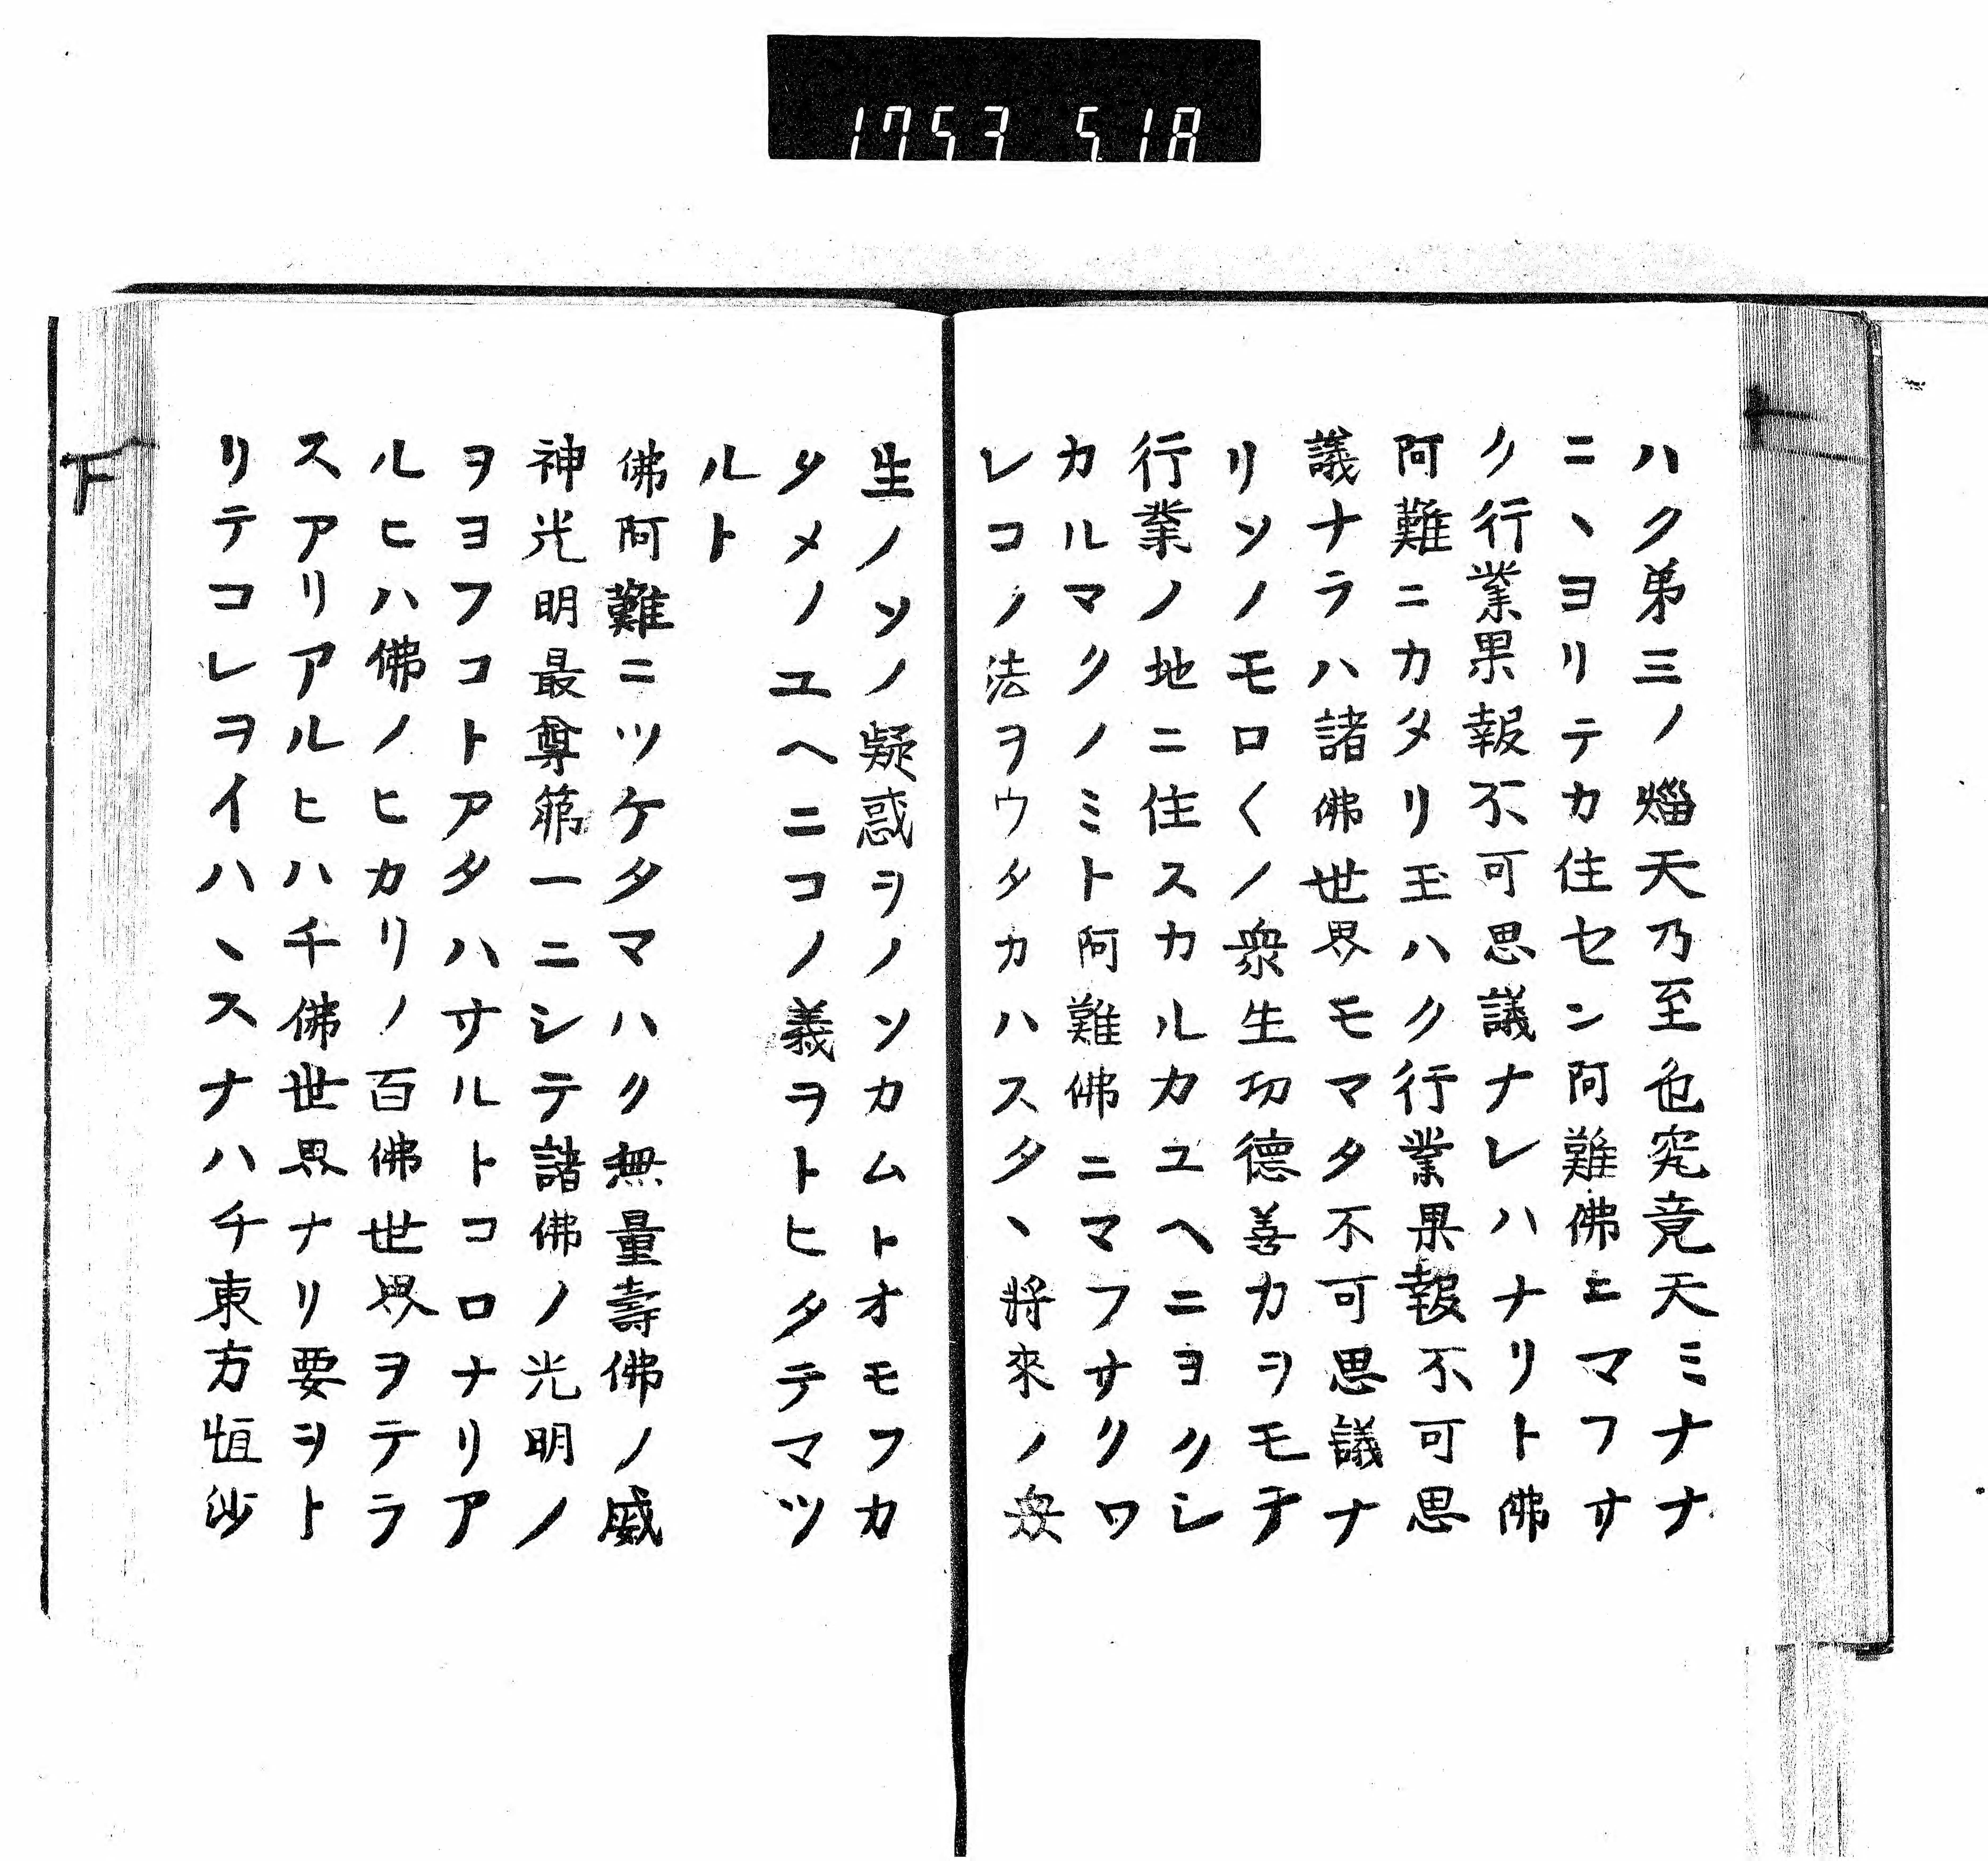 1753 5.18
ハク弟三ノ㷔天乃至色究竟天ミナナ
ニヽヨリテカ住セン阿難佛ニマフサ
ク行業果報不可思議ナレハナリト佛
阿難ニカタリ玉ハク行業果報不可思
議ナラハ諸佛世界モマタ不可思議ナ
リソノモロ〱ノ衆生功德善力ヲモテ
行業ノ地ニ住スカルカユヘニヨクシ
カルマクノミト阿難佛ニマフサクワ
レコノ法ヲウタカハスタヽ將來ノ衆
生ノソノ疑惑ヲノソカムトオモフカ
タメノユヘニコノ義ヲトヒタテマツ
ルト
佛阿難ニツケタマハク無量壽佛ノ威
神光明最尊第一ニシテ諸佛ノ光明ノ
ヲヨフコトアタハサルトコロナリア
ルヒハ佛ノヒカリノ百佛世界ヲテラ
スアリアルヒハ千佛世界ナリ要ヲト
リテコレヲイハヽスナハチ東方恒沙
下